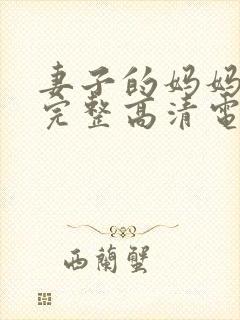 妻子的妈妈
完整高清电
西蘭蟹